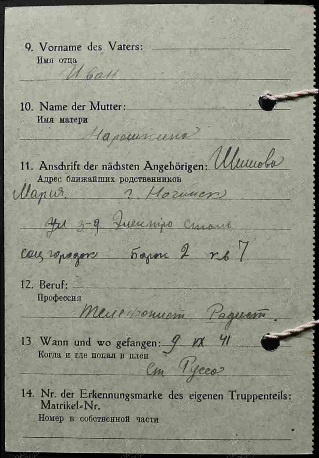 9. Vorname des Vaters:
Имя отца
Иван
10. Name der Mutter:
Имя матери
Марошкина
11. Anschrift der nächsten Angehörigen: Шишова
Адрес ближайших родственников
Мария г. Ногинск
ул 3-д Электро сталь
соц городок Барак 2 кв 7
12. Beruf:
Профессия
Телефонист Радист.
13. Wann und wo gefangen: 9 IX 41
Когда и где попал в плен
ст Руссо
14. Nr. der Erkennungsmarke des eigenen Truppenteils:
Matrikel-Nr.
Номер в собственной части